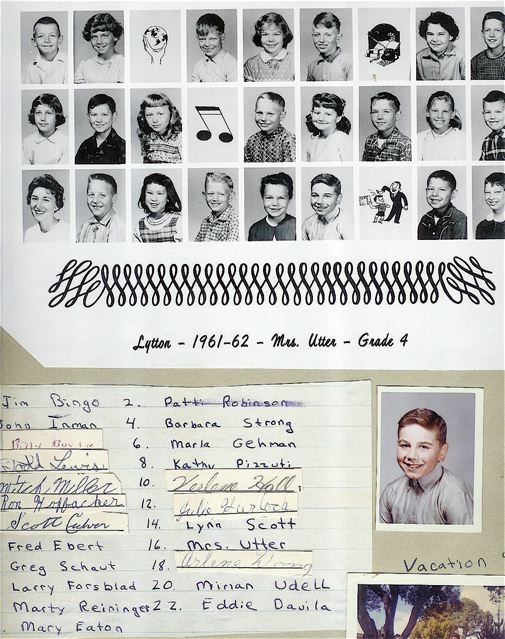 Lytton - 1961-62 - Mrs. Utter - Grade 4
Jim Bingo 2. Patti Robinson
John Inman 4. Barbara Strong
6. Marla Gehman
Todd Lewis 8. Kathy Pizzuti
Mitch Miller 10. Verlene Hall,
Ron Hoffacker 12. Julie
Scott Culver 14. Lynn Scott
Fred Ebert 16. Mrs. Utter
Greg Schaut 18. Arlene
Larry Forsblad 20 Mirian Udell
Marty Reininger 22. Eddie Davila
Mary Eaton
Vacation